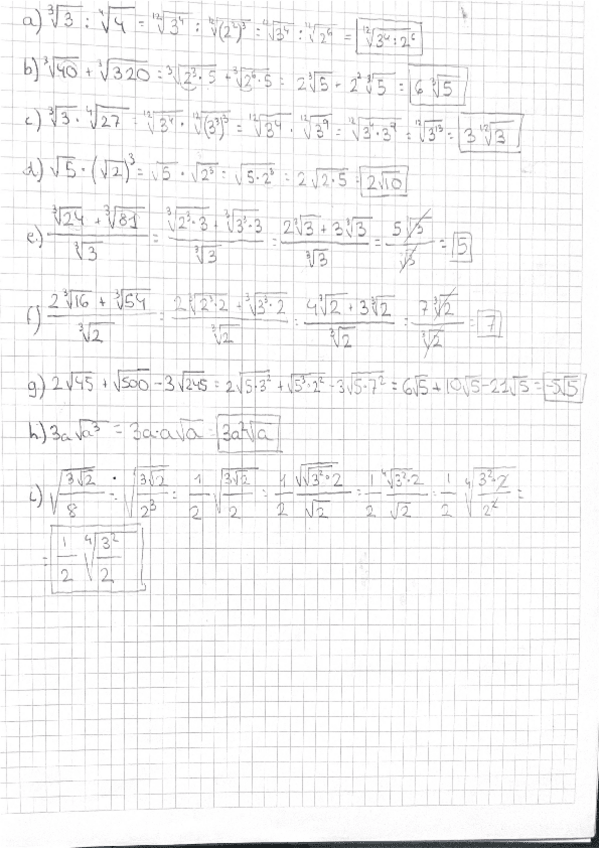 a) ∛3 : ∜4 = ¹²√3⁴ : ¹²√(2²)³ = ¹²√3⁴ : ¹²√2⁶ = ¹²√3⁴:2⁶
b) ∛40 + ∛320 = ∛2³·5 + ∛2⁶·5 = 2∛5 + 2²∛5 = 6∛5
c) ∛3 · ∜27 = ¹²√3⁴ · ¹²√(3³)³ = ¹²√3⁴ · ¹²√3⁹ = ¹²√3⁴·3⁹ = ¹²√3¹³ = 3 ¹²√3
d) √5 · (√2)³ = √5 · √2³ = √5·2³ = 2√2·5 = 2√10
e) (∛24 + ∛81)/∛3 = (∛2³·3 + ∛3³·3)/∛3 = (2∛3 + 3∛3)/∛3 = 5∛3/∛3 = 5
f) (2∛16 + ∛54)/∛2 = (2∛2³·2 + ∛3³·2)/∛2 = (4∛2 + 3∛2)/∛2 = 7∛2/∛2 = 7
g) 2√45 + √500 − 3√245 = 2√5·3² + √5³·2² − 3√5·7² = 6√5 + 10√5 − 21√5 = −5√5
h) 3a√a³ = 3a·a√a = 3a²√a
i) √(3√2/8) = √(3√2/2³) = 1/2 √(3√2/2) = 1/2 √√3²·2/√2 = 1/2 ∜3²·2/√2 = 1/2 ∜(3²·2/2²) =
= 1/2 ∜(3²/2)